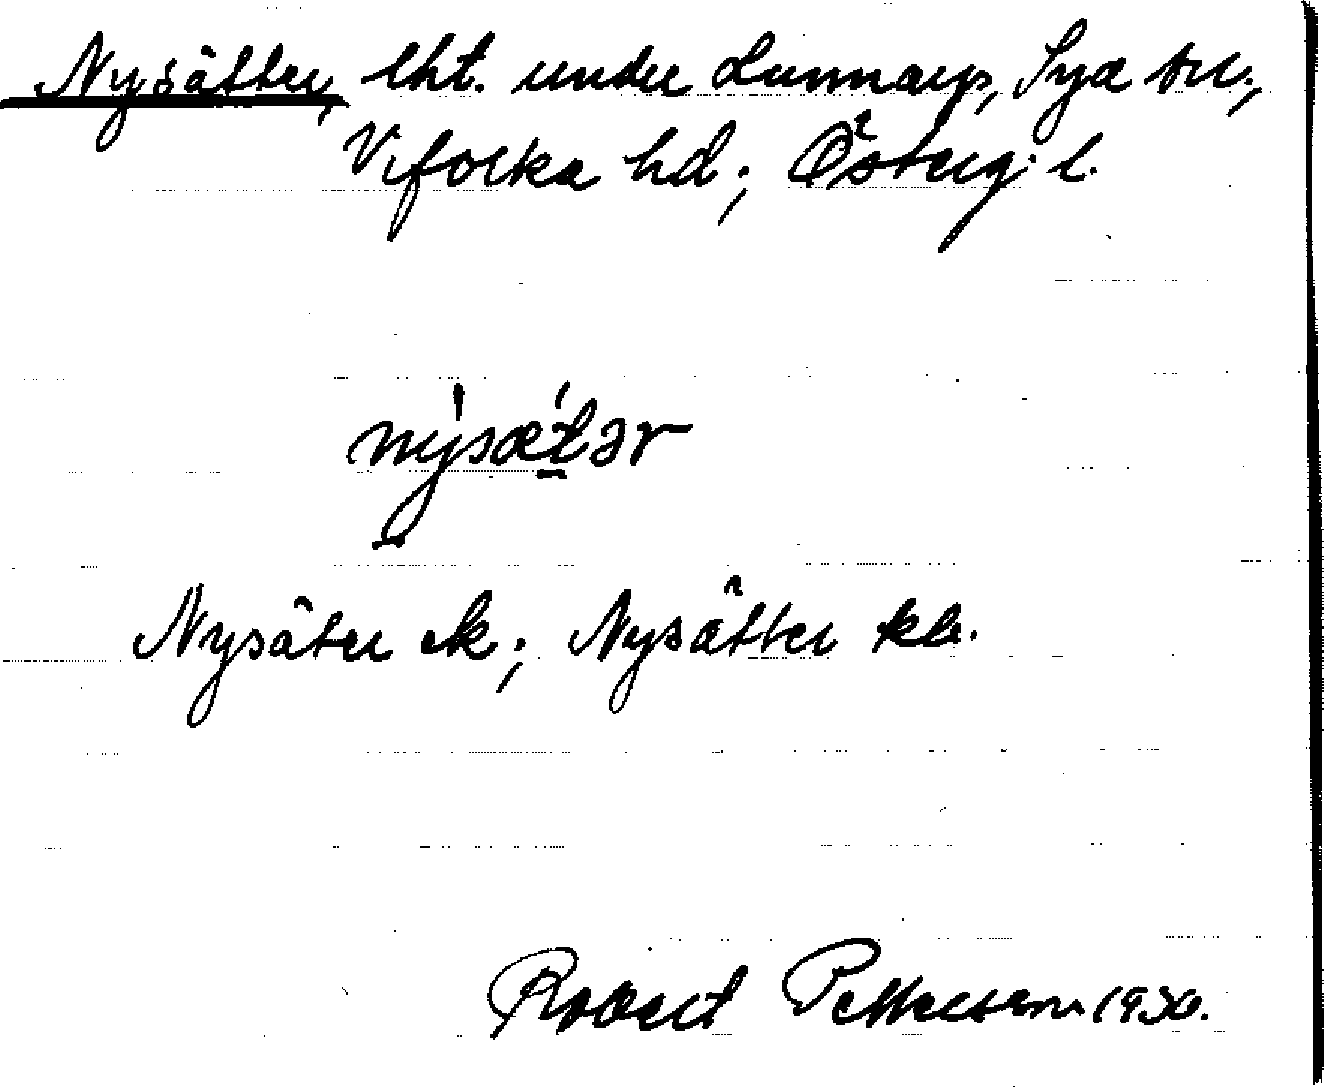 Nysätter, lht. under Lunnarp, Sya sn.,
Vifolka hd; Österg. l.
nysætər
Nysäter ek; Nysätter kb.
Robert Pettersson 1930.